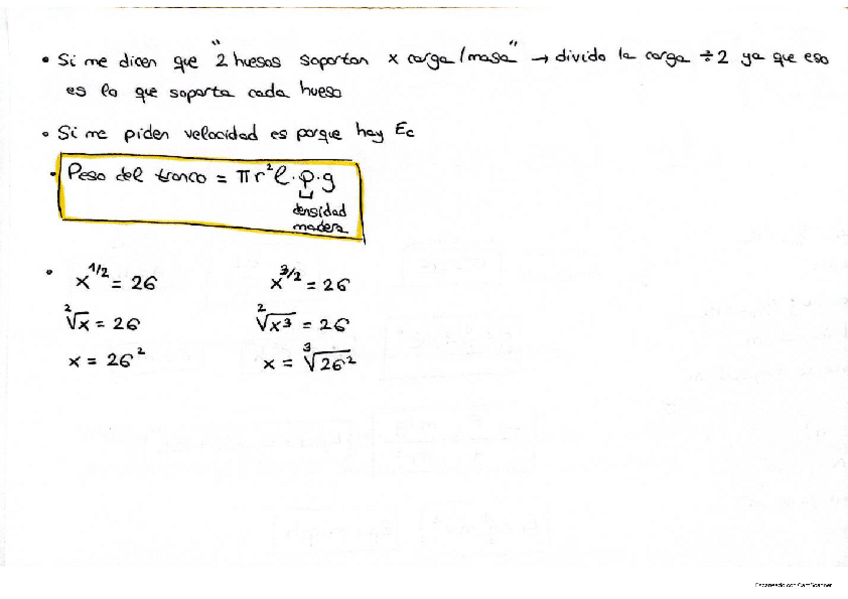 • Si me dicen que "2 huesos soportan x carga/masa" → divido la carga ÷ 2 ya que eso
es lo que soporta cada hueso
• Si me piden velocidad es porque hay Ec
• Peso del tronco = πr²l·ρ·g
densidad
madera
• x^1/2 = 26    x^3/2 = 26
²√x = 26    ²√x³ = 26
x = 26²    x = ³√26²
Escaneado con CamScanner